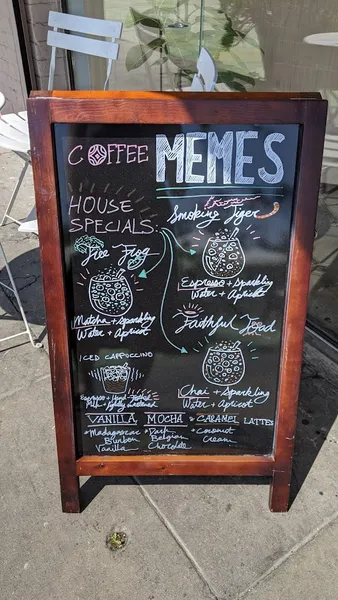 COFFEE MEMES
HOUSE
SPECIALS:
Tree Frog
Matcha + Sparkling
Water + Apricot
Smoking Tiger
Espresso + Sparkling
Water + Apricot
Faithful Toad
Chai + Sparkling
Water + Apricot
ICED CAPPUCCINO
Espresso +
Milk +
VANILLA MOCHA + CARAMEL LATTES
Madagascar
Bourbon
Vanilla
Dark
Belgian
Chocolate
Coconut
Cream